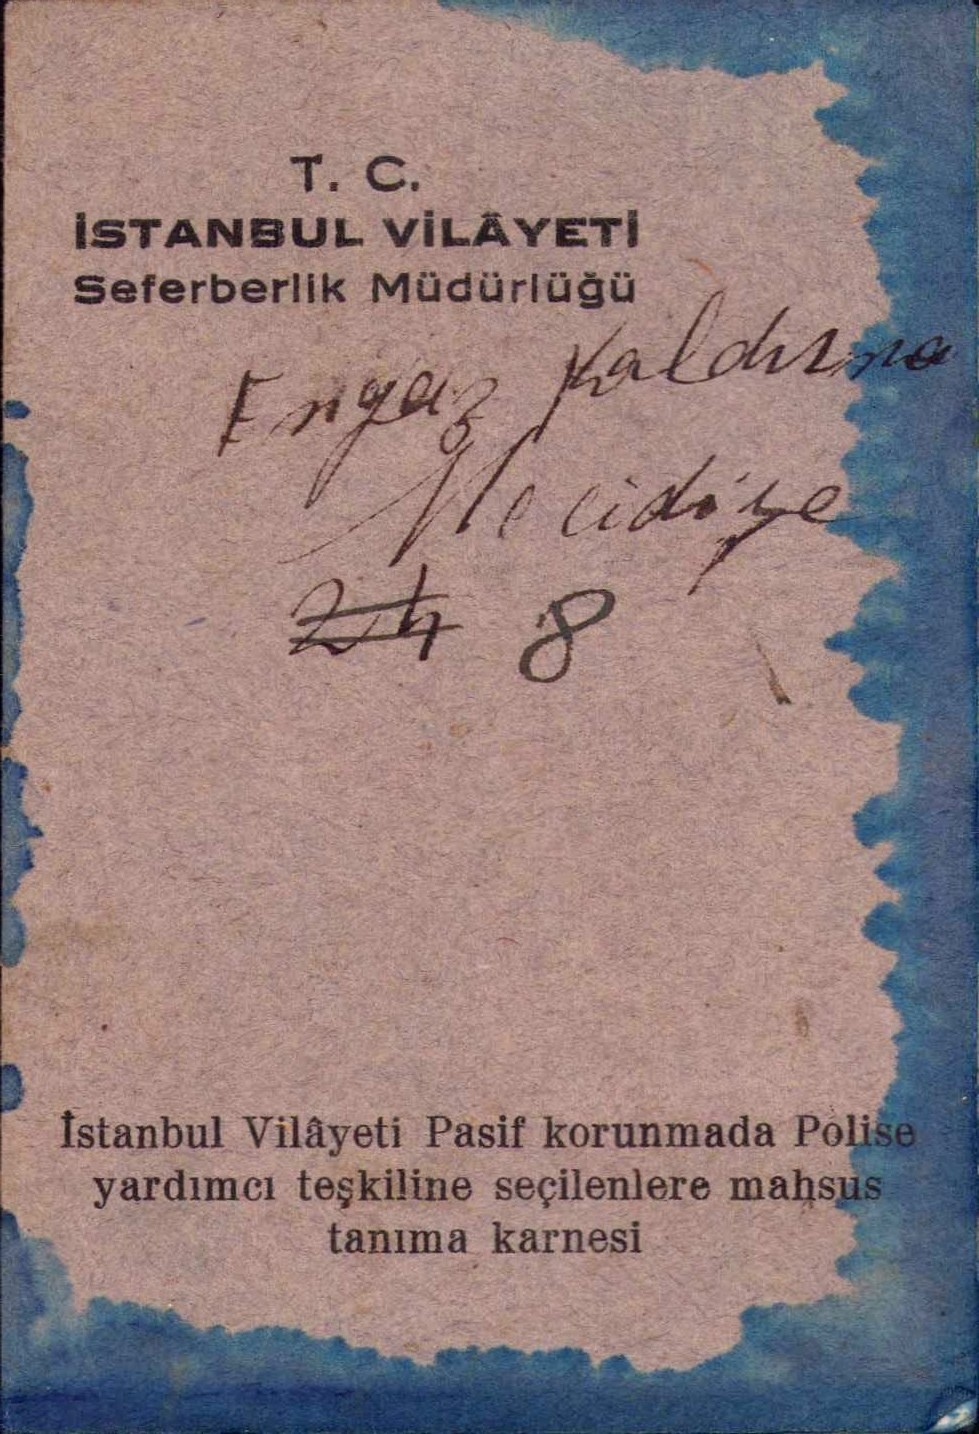 T. C.
İSTANBUL VİLÂYETİ
Seferberlik Müdürlüğü
Engaz Kaldırma
Mecidiye
24 8
İstanbul Vilâyeti Pasif korunmada Polise
yardımcı teşkiline seçilenlere mahsus
tanıma karnesi